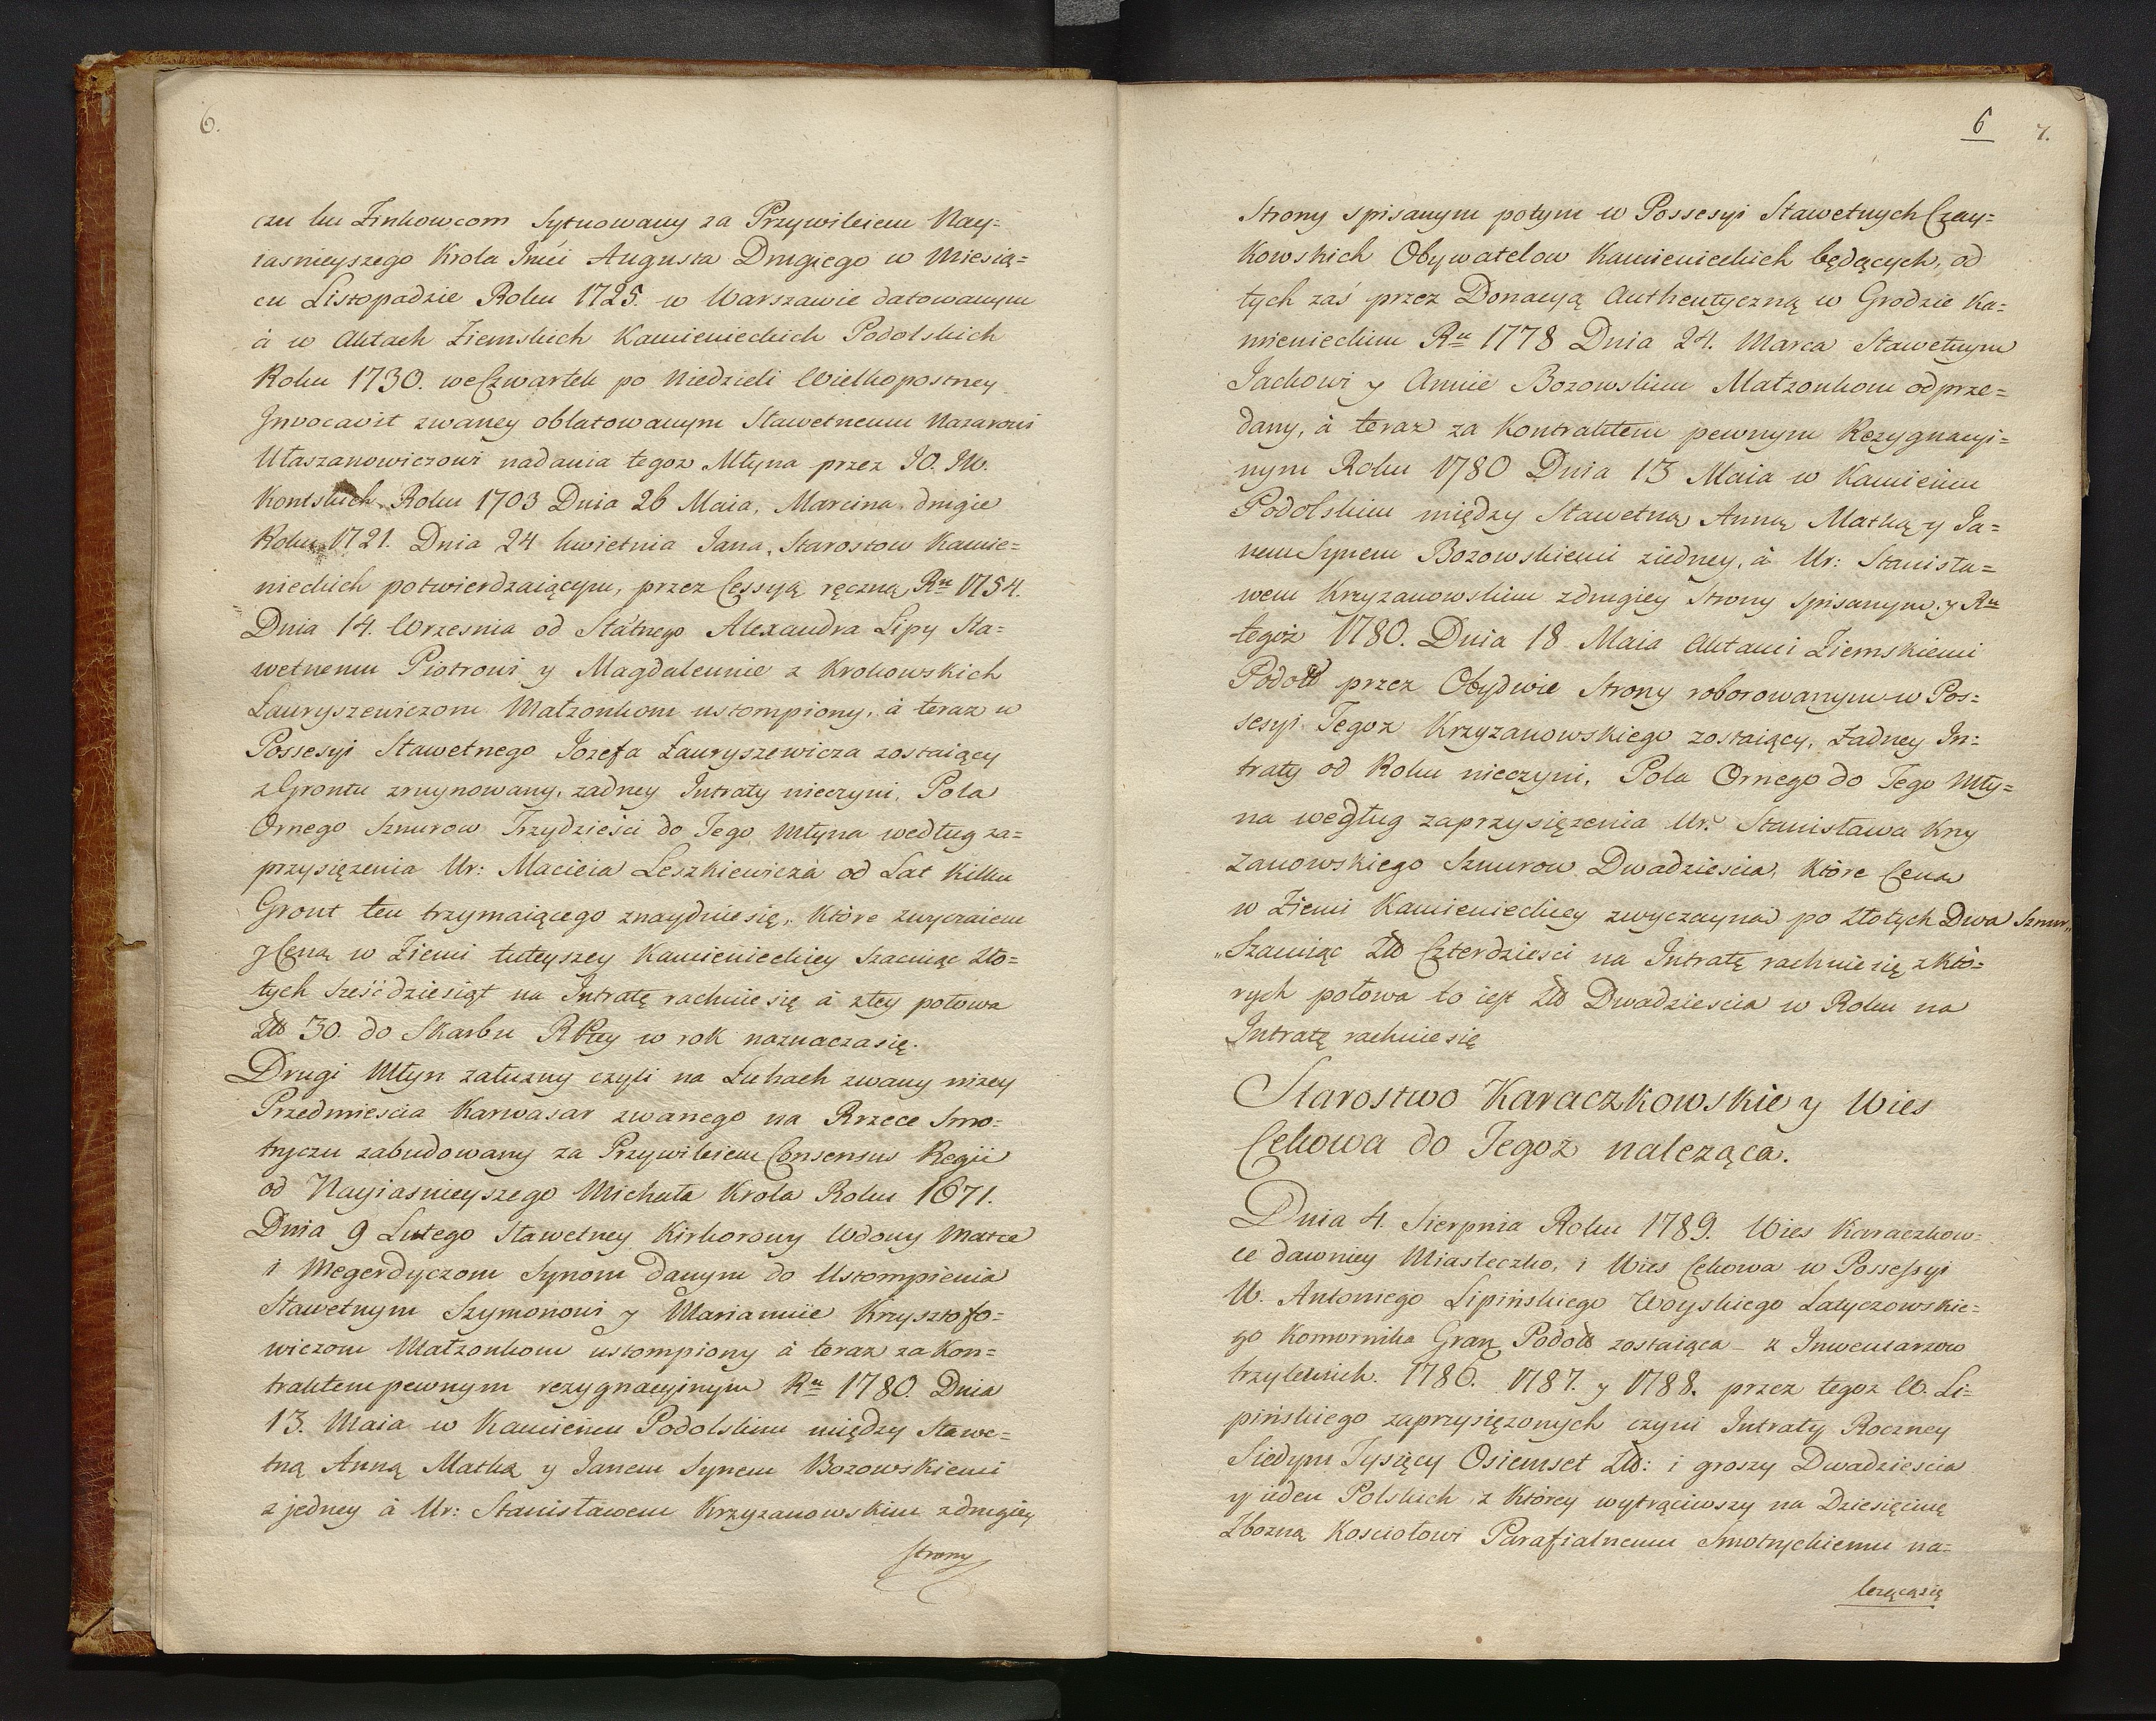 6.
czu ku Zinkowcom Sytuowany za Przywileiem Nay=
iasnieyszego Krola Jmći Augusta Drugiego w Miesią=
cu Listopadzie Roku 1725. w Warszawie datowanym
á w Aktach Ziemskich Kamienieckich Podolskich
Roku 1730. we Czwartek po Niedzieli Wielkopostney
Invocavit zwaney oblatowanym Sławetnemu Nazarowi
Ułaszanowiczowi nadania tegoz Młyna przez JO. JW.
Kontskich Roku 1703 Dnia 26 Maia, Marcina, drugie
Roku 1721. Dnia 24 kwietnia Jana, Starostow Kamie=
nieckich potwierdzaiącym, przez Cessyą ręczną Ru 1754.
Dnia 14. Wrzesnia od Státnego Alexandra Lipy Sła=
wetnemu Piotrowi y Magdalennie z Krokowskich
Lauryszewiczom Małzonkom ustompiony, à teraz w
Possesyi Sławetnego Jozefa Lauryszewicza zostaiący
z Grontu zruynowany, zadney Intraty nieczyni, Pola
Ornego Sznurow Trzydzieści do Tego Młyna według za=
przysięzenia Ur: Macieia Leszkiewicza od Lat Kilku
Gront ten trzymaiącego znayduie się, Które zwyczaiem
y Ceną w Ziemi tuteyszey Kamienieckiey Szacuiąc Zło=
tych Sześćdziesiąt na Intratę rachuie się à ztey połowa
Zło 30. do Skarbu RPtey w rok naznacza się.
Drugi Młyn załuzny czyli na Łuhach zwany nizey
Przedmiescia Karwasar zwanego na Rzece Smo=
tryczu zabudowany za Przywileiem Consensus Regii
od Nayiasnieyszego Michała Krola Roku 1671.
Dnia 9 Lutego Sławetney Kirkorowy Wdowy Matce
i Megerdyczom Synom danym do Ustompienia
Sławetnym Szymonowi y Mariannie Krzysztofo=
wiczom Małzonkom ustompiony à teraz za Kon=
traktem pewnym rezygnacyinym Ru 1780. Dnia
13. Maia w Kamieńcu Podolskim między Sławe=
tną Anną Matką y Janem Synem Bozowskiemi
z jedney à Ur: Stanisławem Krzyzanowskim zdrugiey
strony
6 7.
Strony spisanym potym w Possesyi Sławetnych Czay=
Kowskich Obywatelow Kamienieckich będących, od
tych zaś przez Donacyą Authentyczną w Grodzie Ka=
mienieckim Ru 1778 Dnia 24. Marca Sławetnym
Jackowi y Annie Bozowskim Małzonkom odprze=
dany, à teraz za Kontraktem pewnym Rezygnacyi=
nym Roku 1780 Dnia 13 Maia w Kamieńcu
Podolskim między Sławetną Anną Matką y Ja=
nem Synem Bozowskiemi ziedney, à Ur: Stanisła=
wem Krzyzanowskim zdrugiey Strony Spisanym, y Ru
tegoż 1780. Dnia 18 Maia Aktami Ziemskiemi
Podol przez Obydwie Strony roborowanym w Pos=
sesyi Tegoz Krzyzanowskiego zostaiący, Zadney In=
traty od Roku nieczyni, Pola Ornego do Tego Mły=
na według zaprzysięzenia Ur. Stanisława Krzy
zanowskiego Sznurow Dwadziescia, Które Ceną
w Ziemi Kamienieckiey zwyczayną po Złotych Dwa Sznur
Szacuiąc Zło Czterdziesci na Intratę rachuie się z Któ=
rych połowa to iest Zło Dwadziescia w Roku na
Intratę rachuie się
Starostwo Karaczkowskie y Wies
Cekowa do Tegoż należąca.
Dnia 4. Sierpnia Roku 1789. Wies Karaczkow=
ce dawniey Miasteczko, i Wies Cekowa w Possessyi
W. Antoniego Lipińskiego Woyskiego Latyczowskie=
go Komornika Gran Podol zostaiąca - z Inwentarzow
trzyletnich. 1786. 1787. y 1788. przez tegoz W. Li=
pińskiego zaprzysięzonych czyni Intraty Roczney
Siedym Tysięcy Osiemset Zło: i groszy Dwadziescia
y ieden Polskich z Którey wytrąciwszy na Dziesięcinę
Zbozną Kosciołowi Parafialnemu Smotryckiemu na=
lezącą się